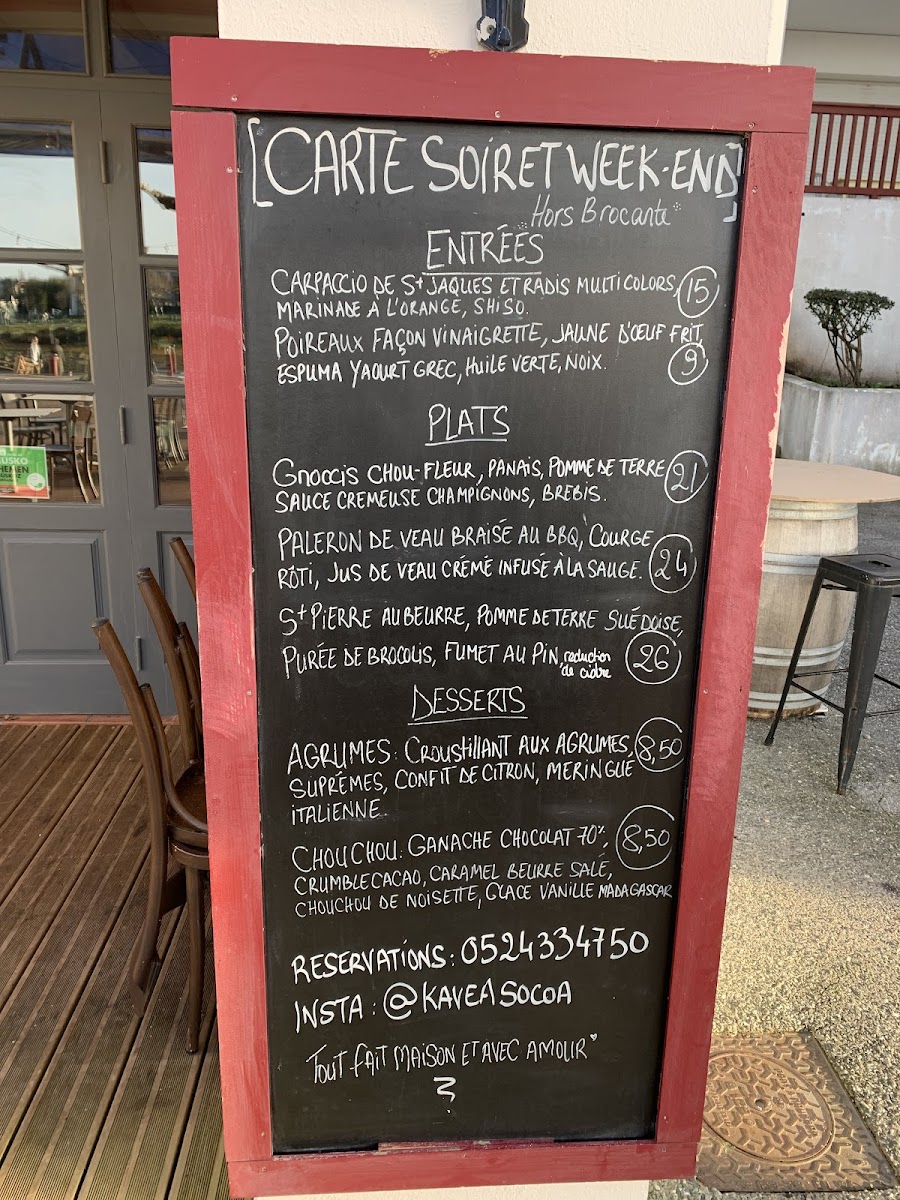 [CARTE SOIR ET WEEK-END]
Hors Brocante
ENTRÉES
CARPACCIO DE St JAQUES ET RADIS MULTICOLORS, 15
MARINADE A L'ORANGE, SHISO.
POIREAUX FAÇON VINAIGRETTE, JAUNE D'OEUF FRIT,
ESPUMA YAOURT GREC, HUILE VERTE, NOIX. 9
PLATS
GNOCCIS CHOU-FLEUR, PANAIS, POMME DE TERRE 21
SAUCE CREMEUSE CHAMPIGNONS, BREBIS.
PALERON DE VEAU BRAISÉ AU BBQ, COURGE
RÔTI, JUS DE VEAU CRÉMÉ INFUSÉ À LA SAUGE. 24
St PIERRE AU BEURRE, POMME DE TERRE SUÉDOISE,
PURÉE DE BROCOLIS, FUMET AU PIN, reduction de cidre 26
DESSERTS
AGRUMES: CROUSTILLANT AUX AGRUMES, 8,50
SUPRÉMES, CONFIT DE CITRON, MERINGUE
ITALIENNE
CHOUCHOU. GANACHE CHOCOLAT 70%, 8,50
CRUMBLE CACAO, CARAMEL BEURRE SALÉ,
CHOUCHOU DE NOISETTE, GLACE VANILLE MADAGASCAR
RESERVATIONS: 0524334750
INSTA: @KAVEASOCOA
TOUT FAIT MAISON ET AVEC AMOUR